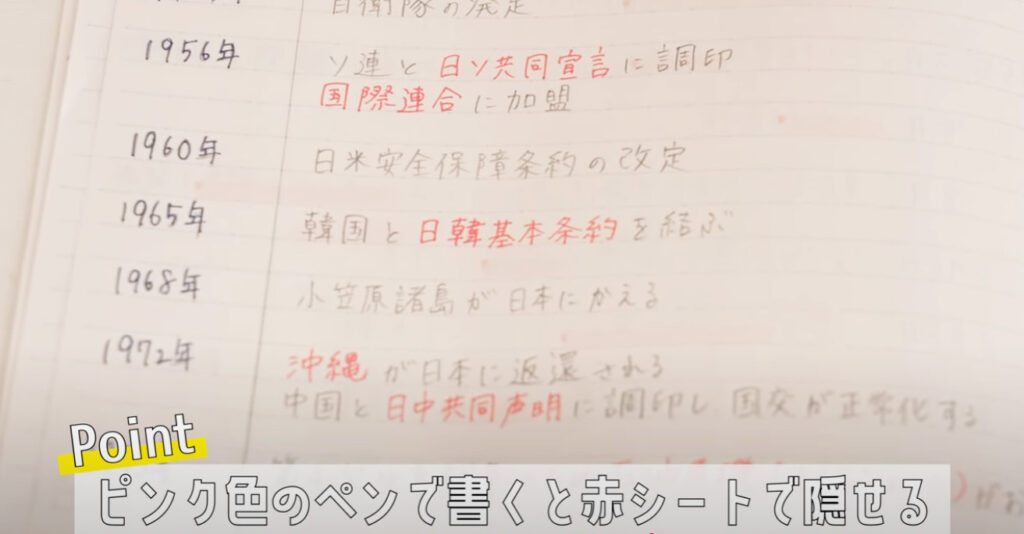 自衛隊の発足
1956年 ソ連と日ソ共同宣言に調印
国際連合に加盟
1960年 日米安全保障条約の改定
1965年 韓国と日韓基本条約を結ぶ
1968年 小笠原諸島が日本にかえる
1972年 沖縄が日本に返還される
中国と日中共同声明に調印し 国交が正常化する
Point
ピンク色のペンで書くと赤シートで隠せる